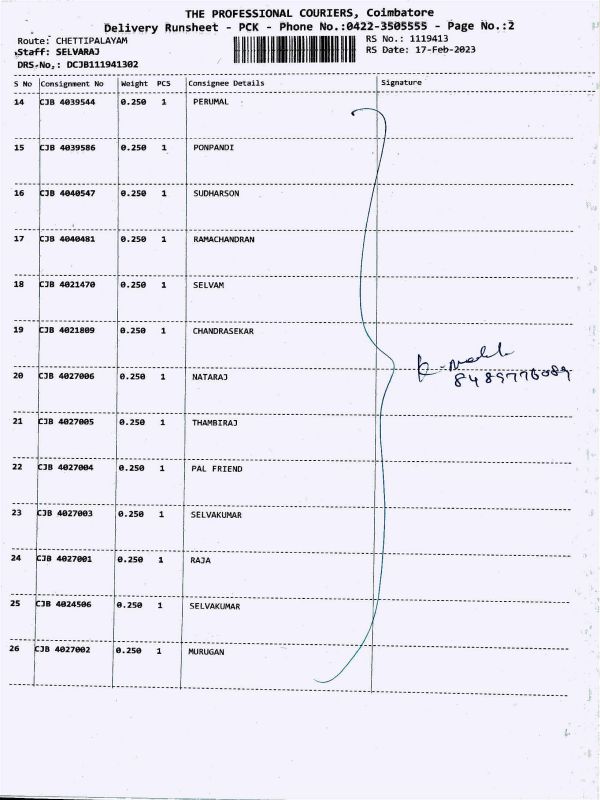 THE PROFESSIONAL COURIERS, Coimbatore
Delivery Runsheet - PCK - Phone No.:0422-3505555 - Page No.:2
Route: CHETTIPALAYAM
RS No.: 1119413
Staff: SELVARAJ
RS Date: 17-Feb-2023
DRS.No.: DCJB111941302
S No Consignment No Weight PCS Consignee Details Signature
14 CJB 4039544 0.250 1 PERUMAL
15 CJB 4039586 0.250 1 PONPANDI
16 CJB 4040547 0.250 1 SUDHARSON
17 CJB 4040481 0.250 1 RAMACHANDRAN
18 CJB 4021470 0.250 1 SELVAM
19 CJB 4021809 0.250 1 CHANDRASEKAR
20 CJB 4027006 0.250 1 NATARAJ
21 CJB 4027005 0.250 1 THAMBIRAJ
22 CJB 4027004 0.250 1 PAL FRIEND
23 CJB 4027003 0.250 1 SELVAKUMAR
24 CJB 4027001 0.250 1 RAJA
25 CJB 4024506 0.250 1 SELVAKUMAR
26 CJB 4027002 0.250 1 MURUGAN